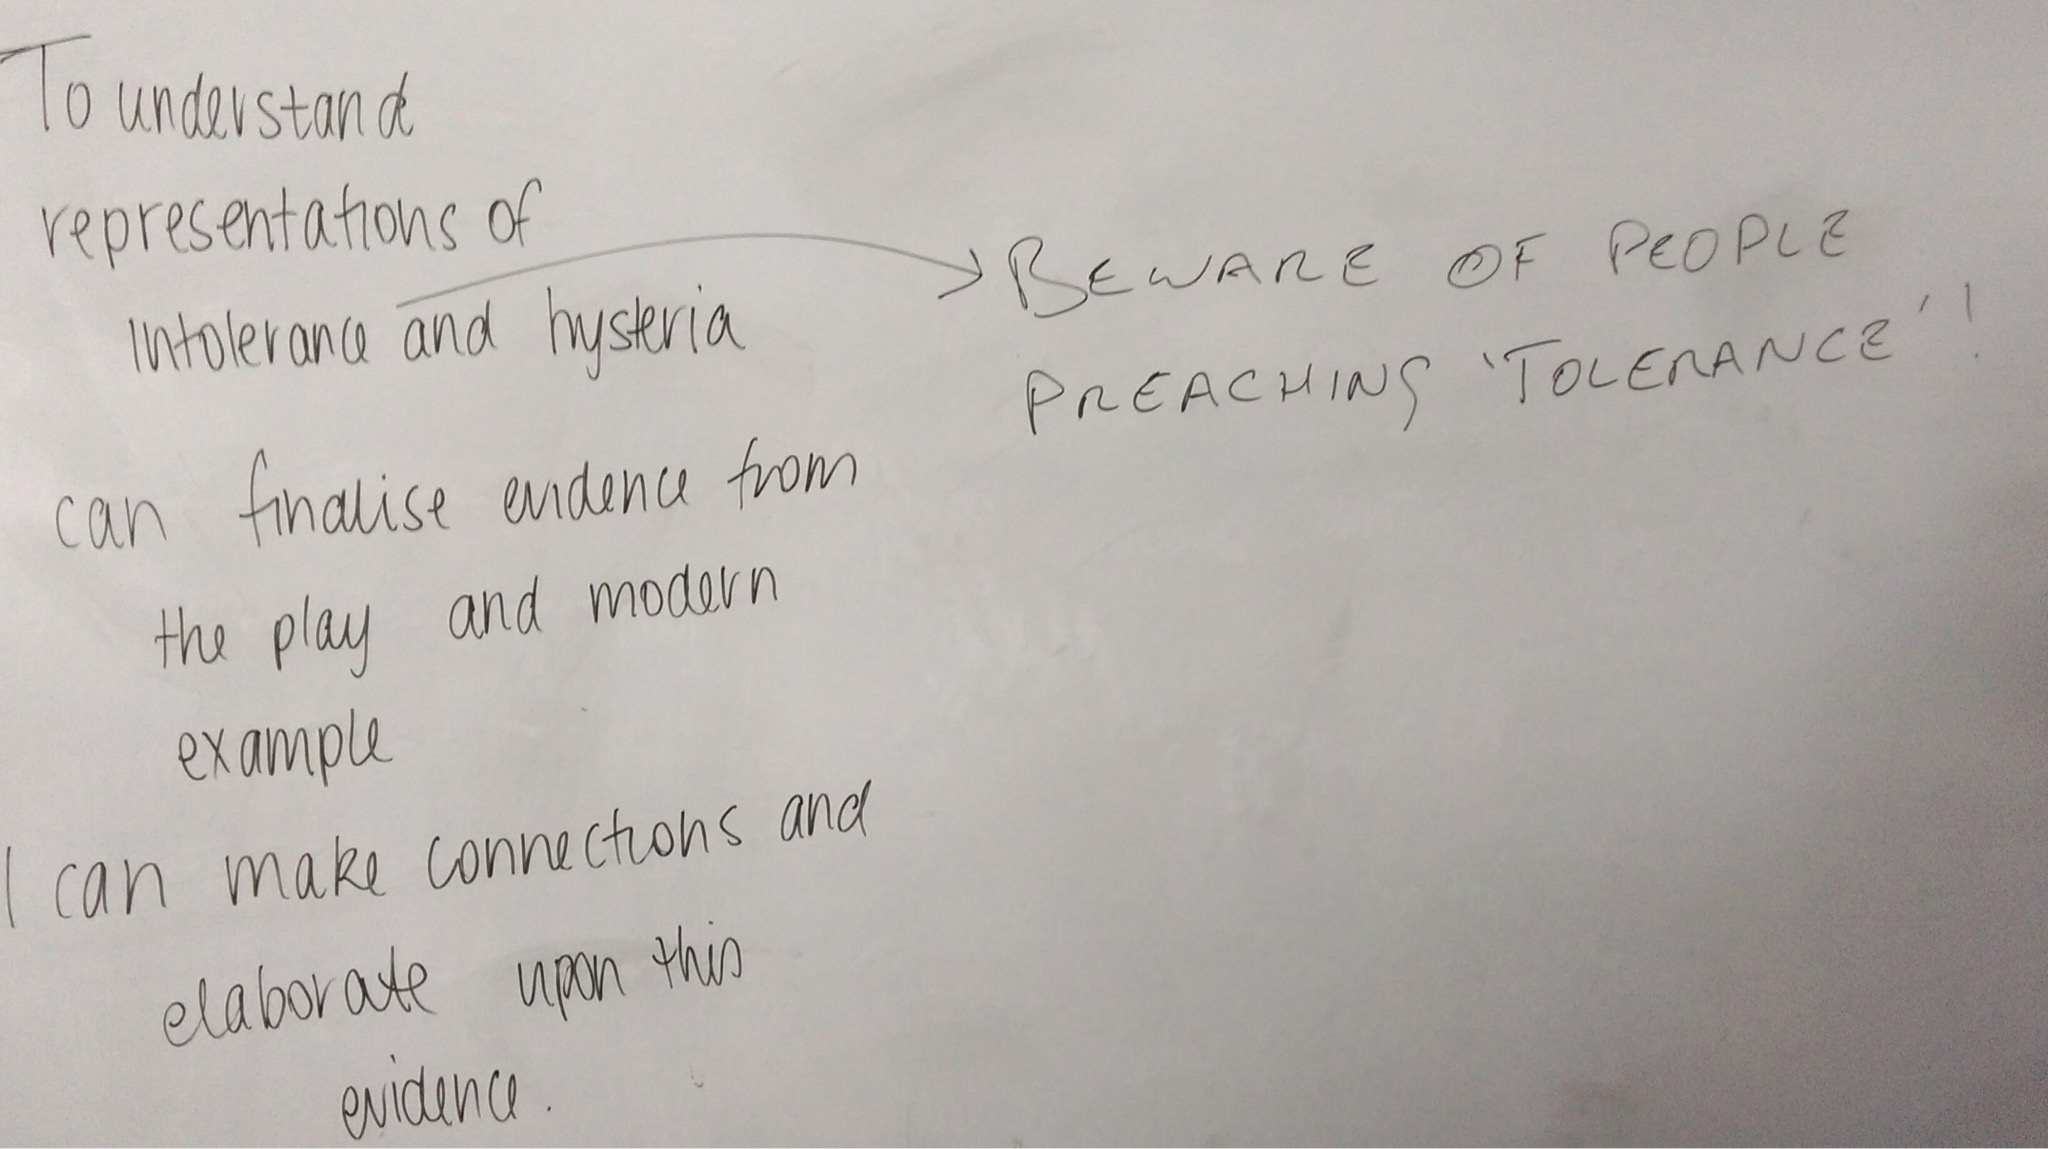 To understand
representations of
intolerance and hysteria
can finalise evidence from
the play and modern
example
I can make connections and
elaborate upon this
evidence.
BEWARE OF PEOPLE
PREACHING 'TOLERANCE'!